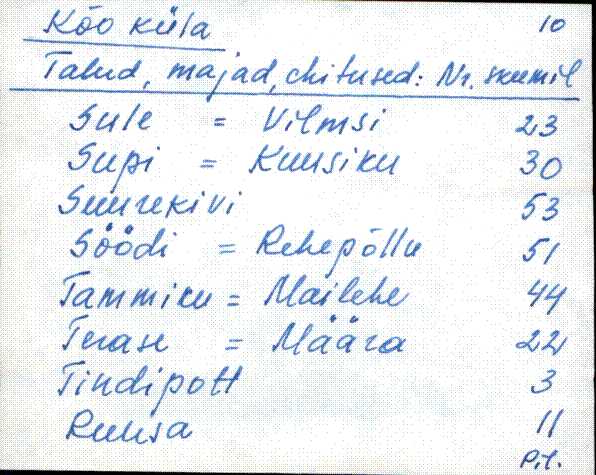 Kõo küla 10
Talud, majad, ehitused: Nr. skeemil
Sule = Vilmsi 23
Supi = Kuusiku 30
Suurekivi 53
Söödi = Rehepõllu 51
Tammiku = Mailehe 44
Terase = Määra 22
Tindipott 3
Ruusa 11
P.t.